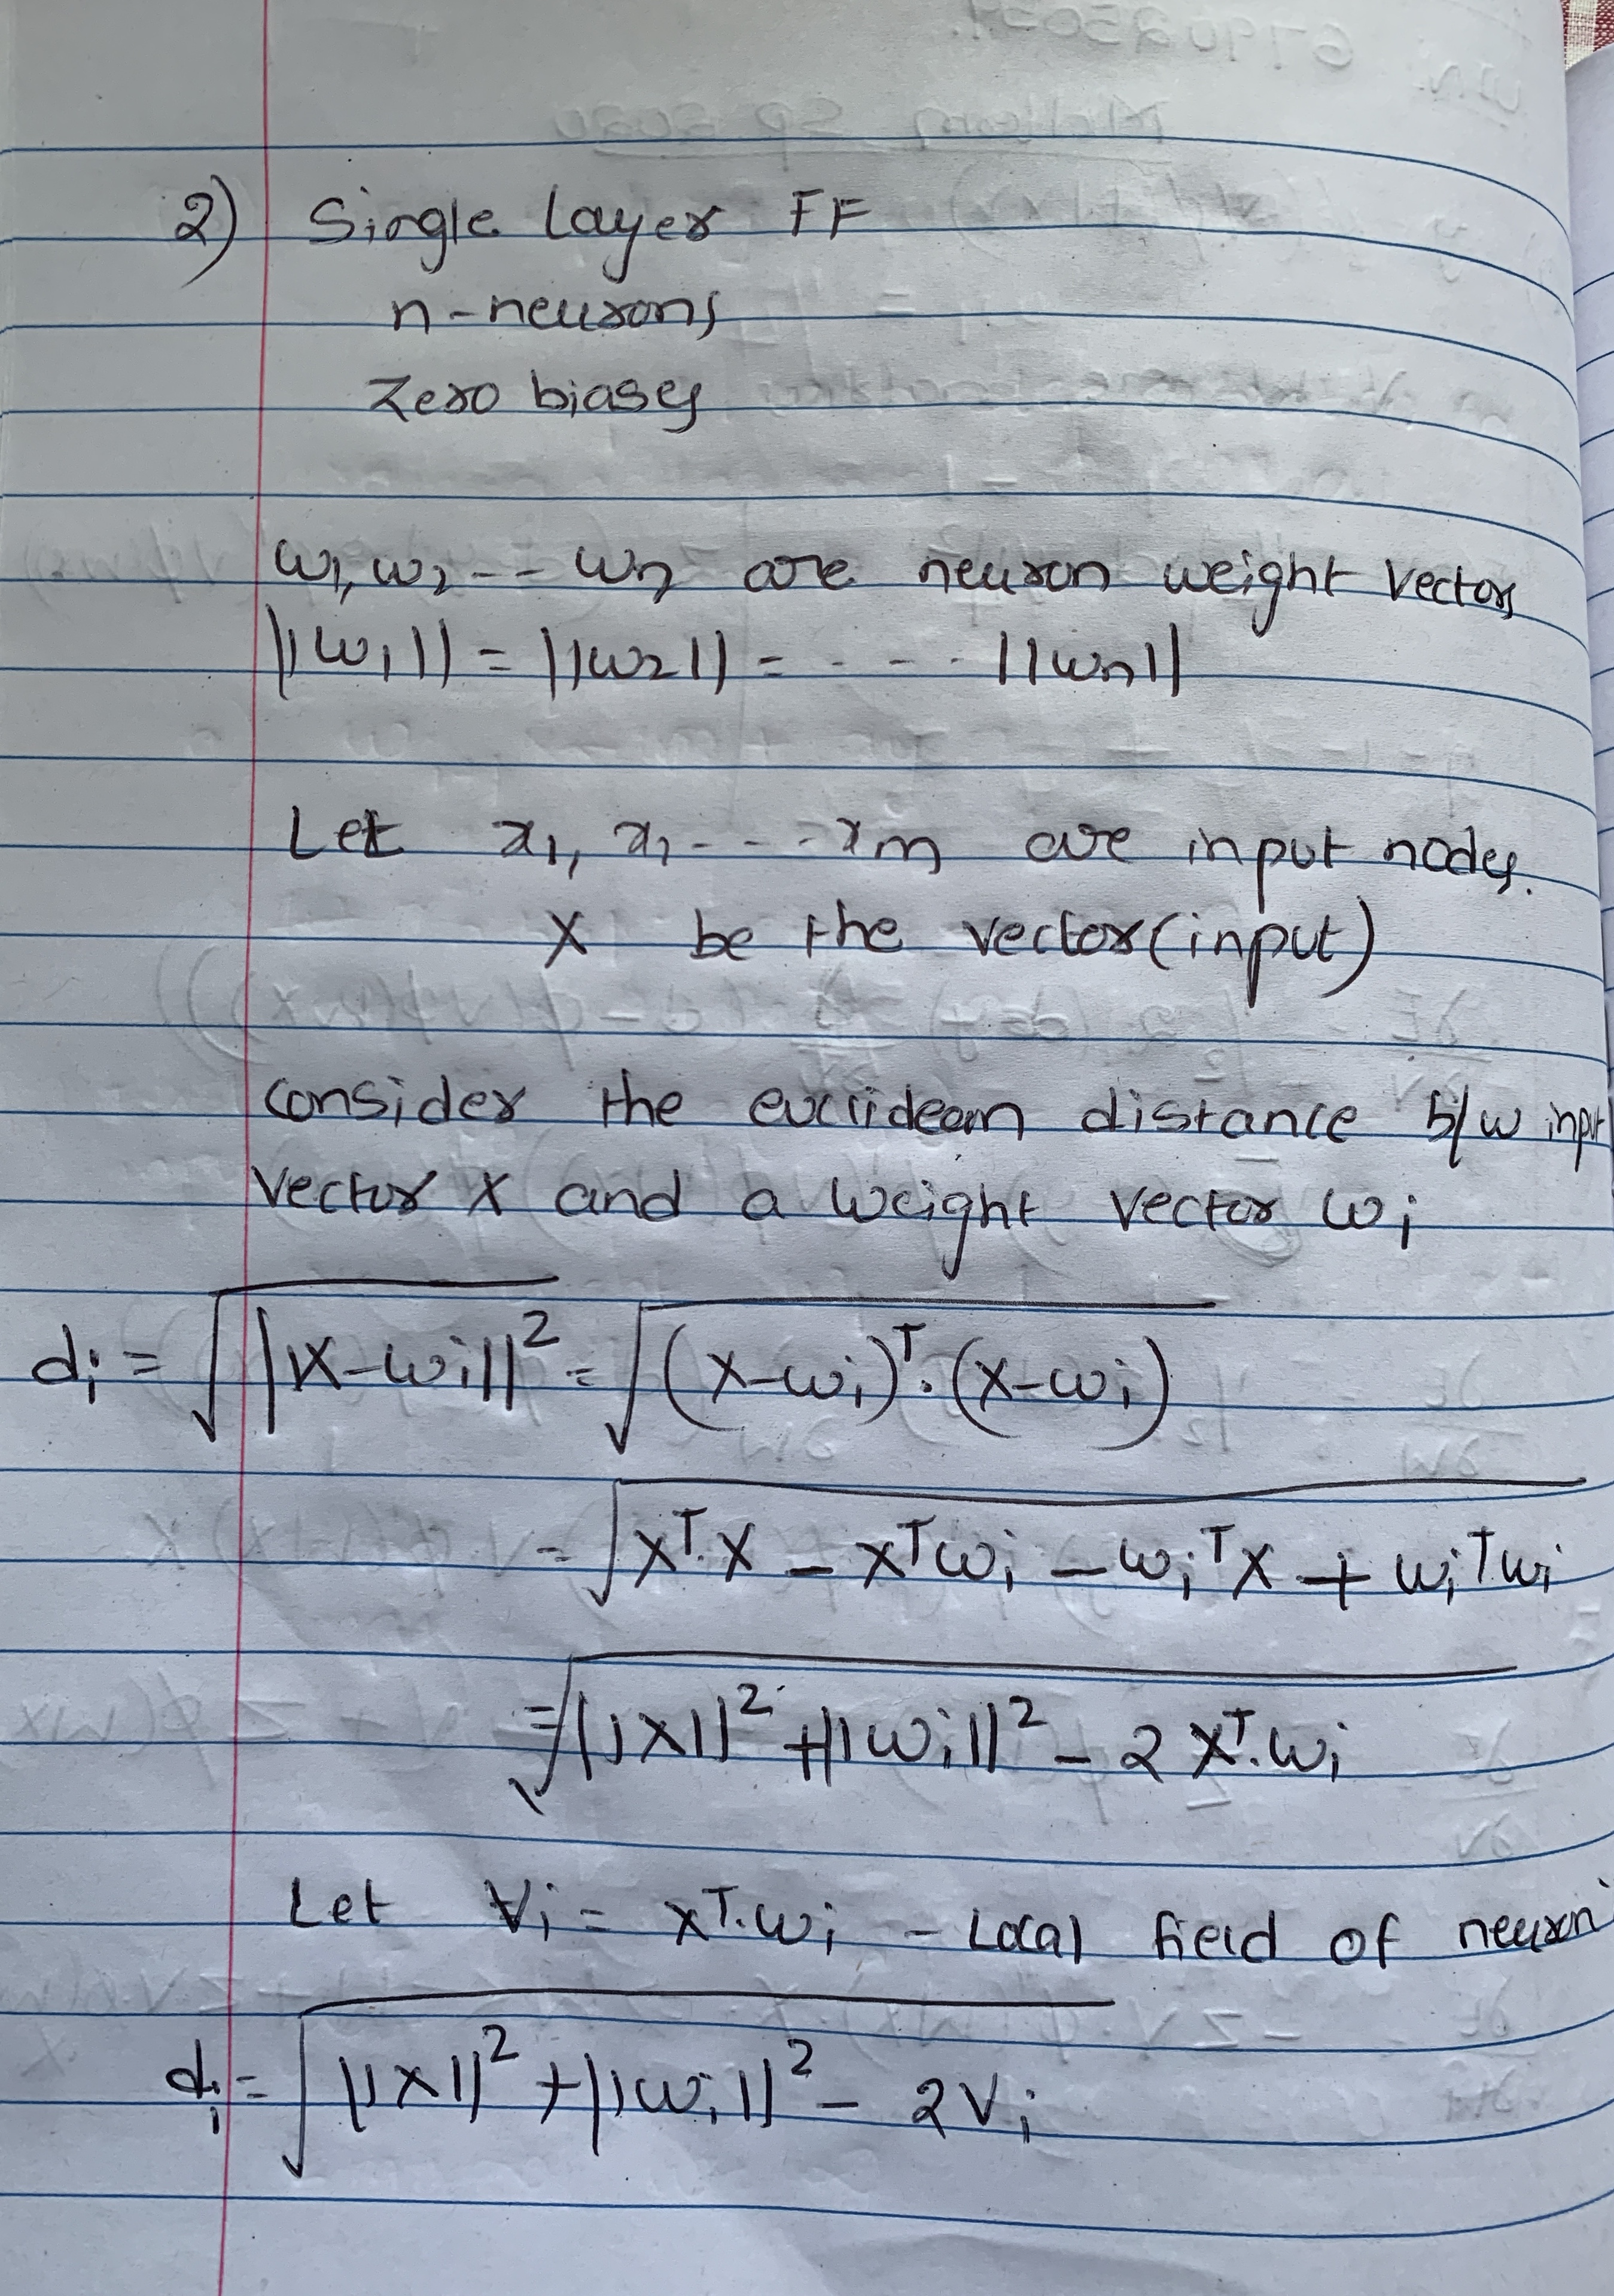 2) Single Layer FF
n-neurons
Zero biases
w1, w2 -- wn are neuron weight vectors
||w1|| = ||w2|| = - - - - ||wn||
Let x1, x2 - - - xm are input nodes.
X be the vector (input)
consider the euclidean distance b/w input
vector X and a weight vector wi
di = √||X-wi||² = √(X-wi)ᵀ.(X-wi)
= √Xᵀ.X - Xᵀwi - wiᵀX + wiᵀwi
= √||X||² + ||wi||² - 2Xᵀ.wi
Let Vi = Xᵀ.wi - Local field of neuron
di = √||X||² + ||wi||² - 2Vi